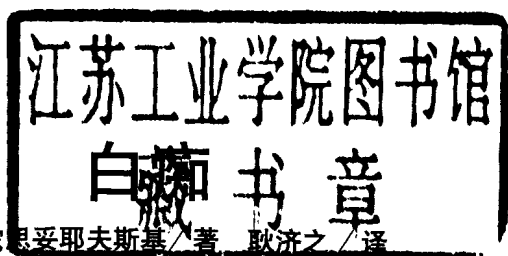 江苏工业学院图书馆
白痴
藏书章
思妥耶夫斯基/著 耿济之/译